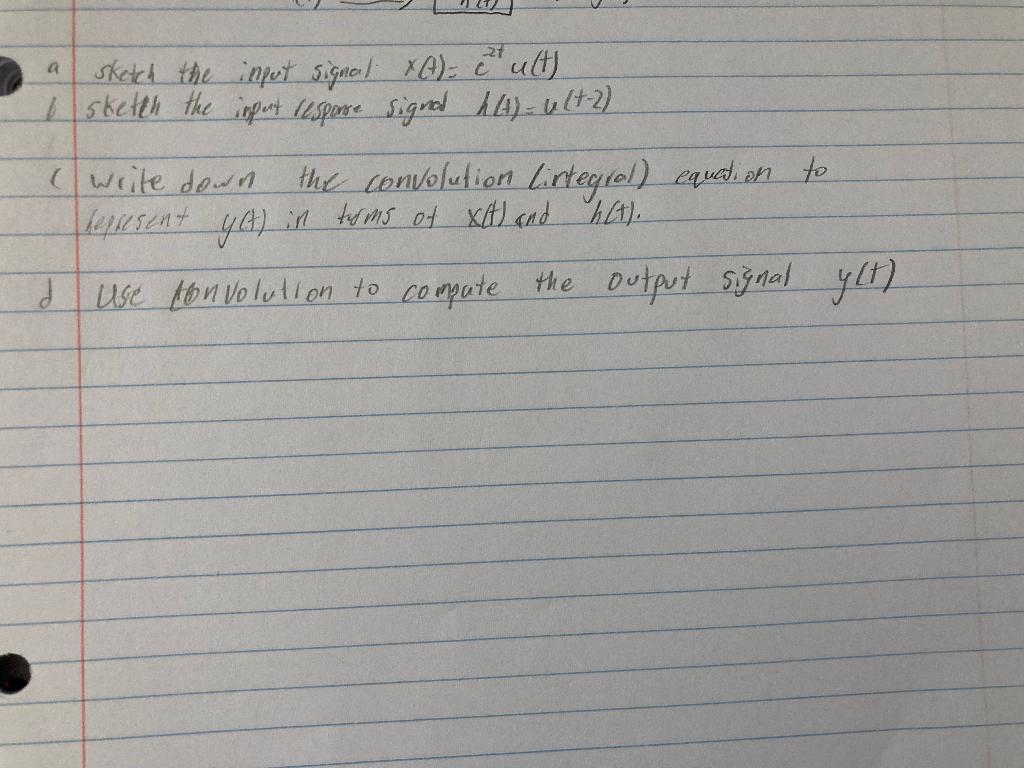 h(t)
a sketch the input signal x(t) = e^-2t u(t)
b sketch the input response signal h(t) = u(t-2)
c write down the convolution (integral) equation to
represent y(t) in terms of x(t) and h(t).
d Use convolution to compute the output signal y(t)